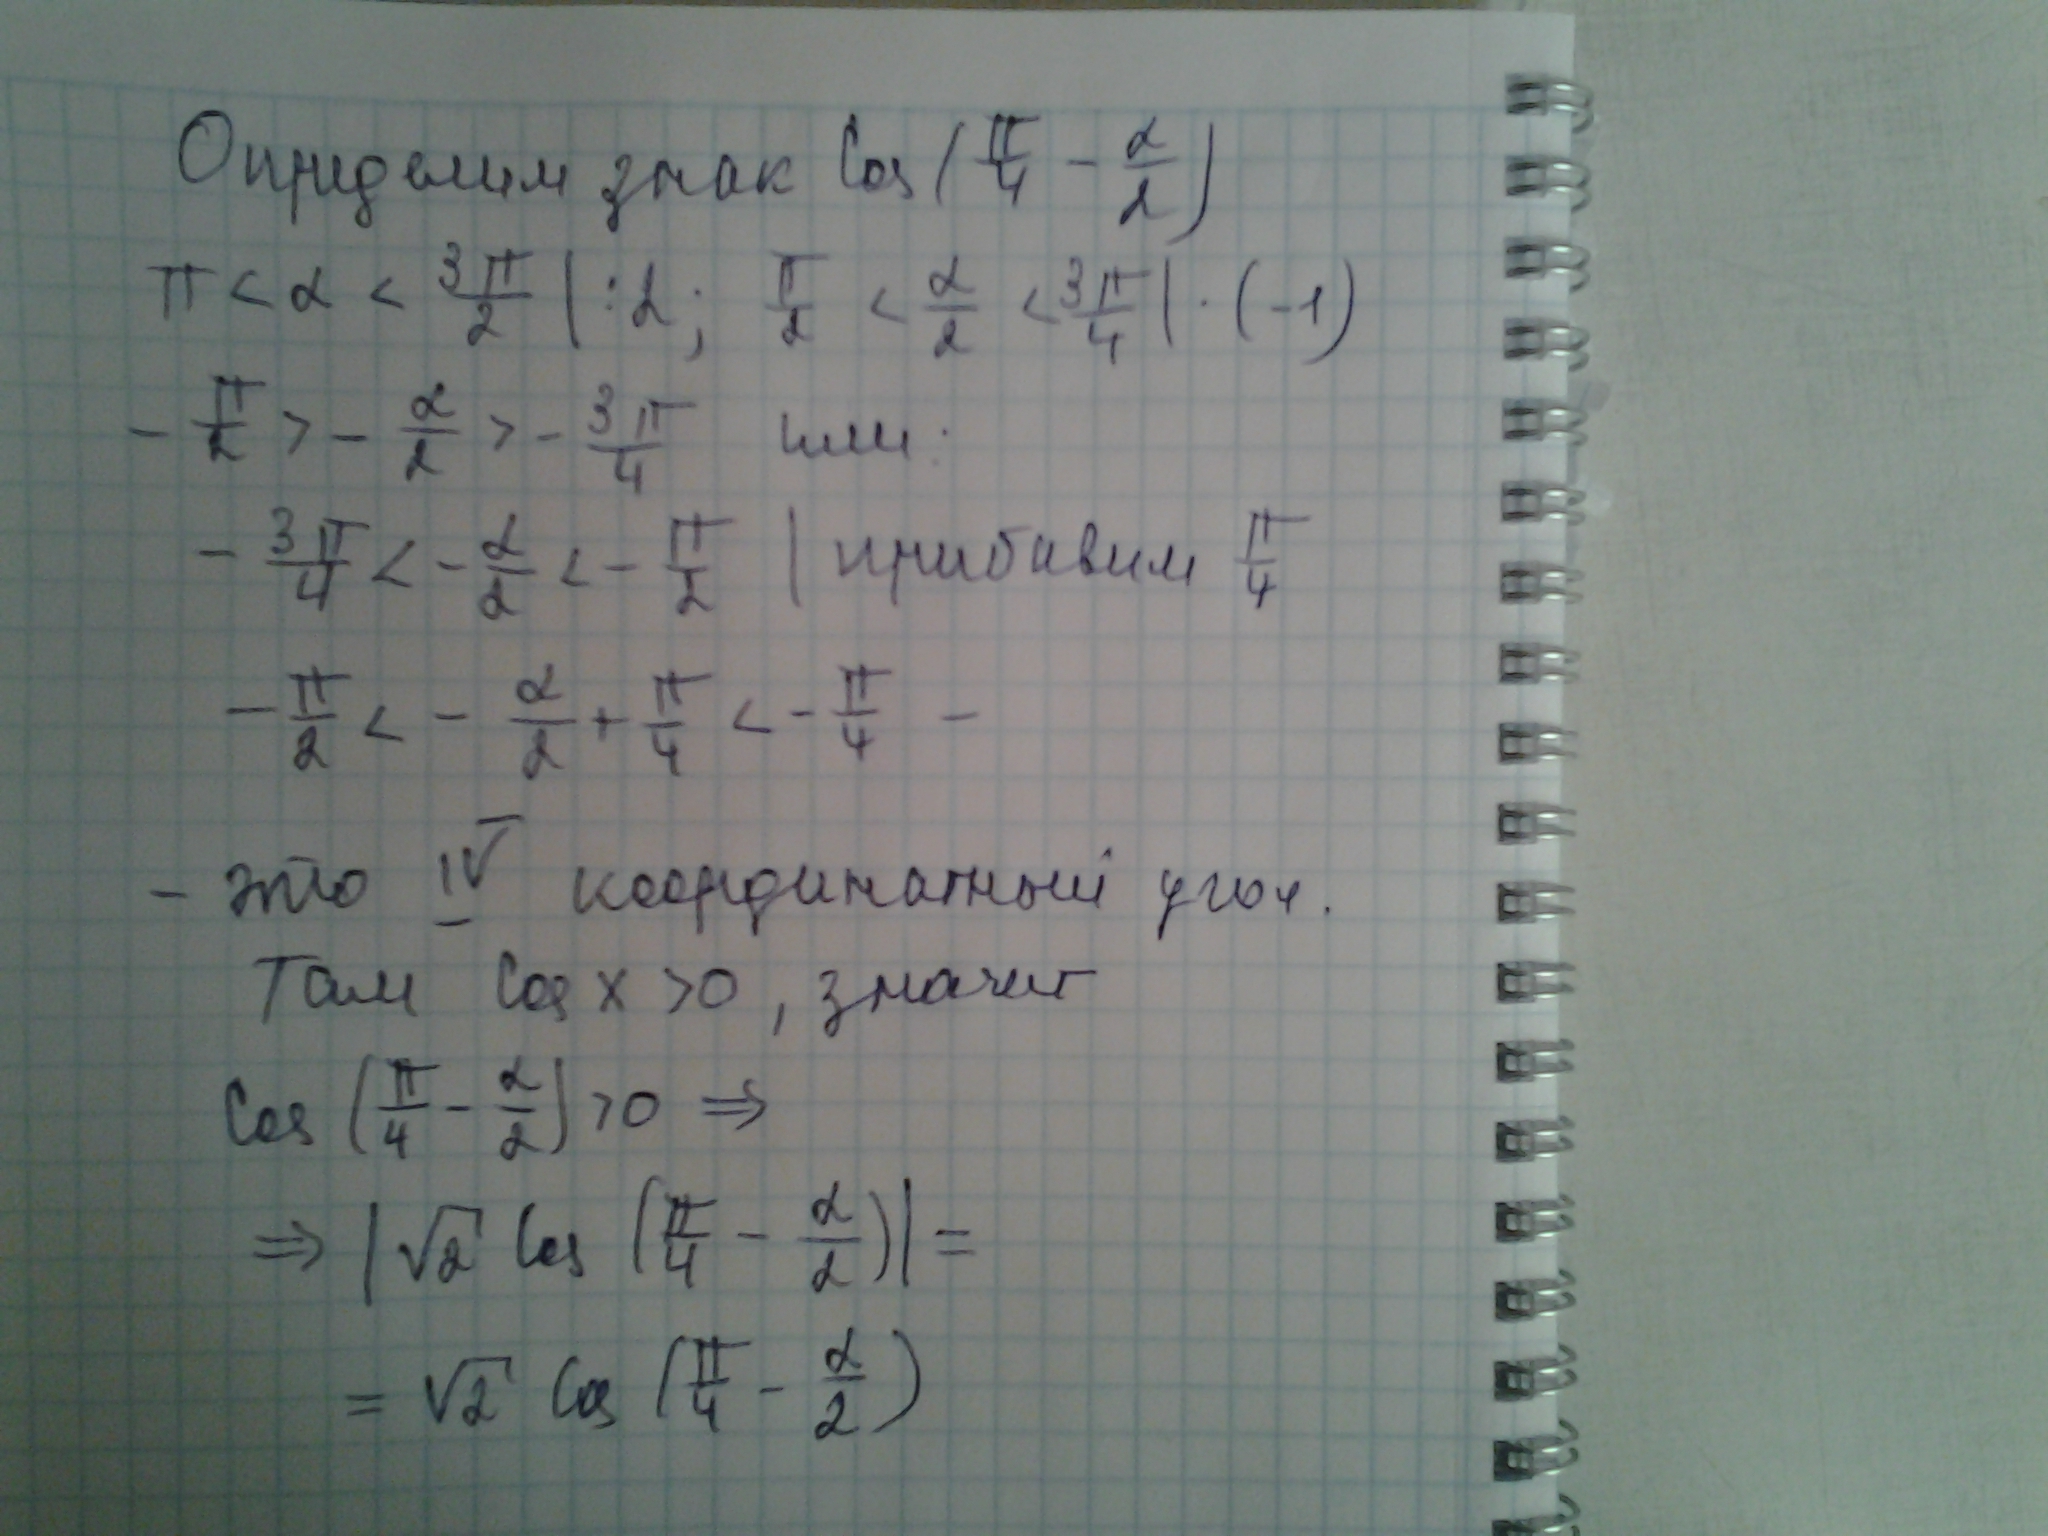 Определим знак Cos(π/4 - α/2)
π < α < 3π/2 | :2; π/2 < α/2 < 3π/4 | · (-1)
- π/2 > - α/2 > - 3π/4 или:
- 3π/4 < - α/2 < - π/2 | прибавим π/4
- π/2 < - α/2 + π/4 < - π/4 -
- это IV координатный угол.
Там Cos x > 0, значит
Cos (π/4 - α/2) > 0 ⇒
⇒ | √2 Cos (π/4 - α/2) | =
= √2 Cos (π/4 - α/2)